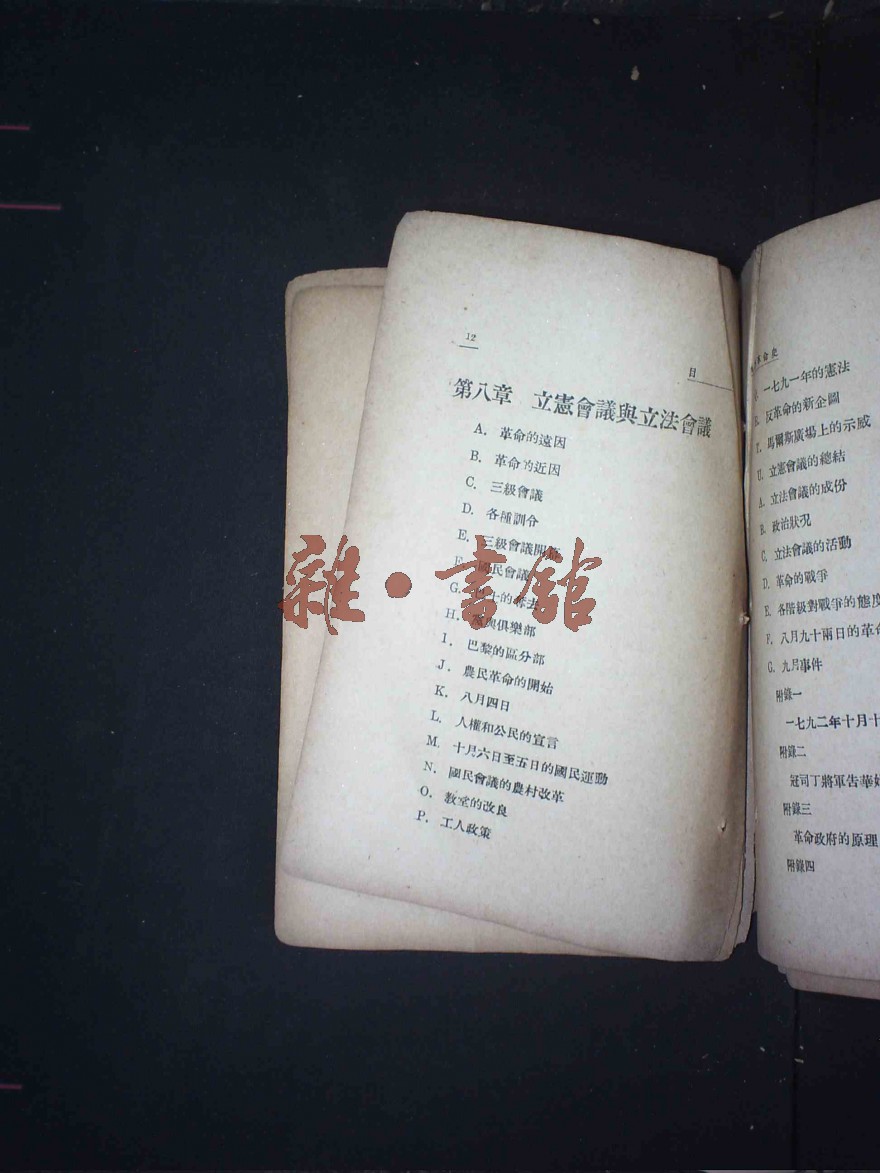 12
目
第八章 立憲會議與立法會議
A. 革命的遠因
B. 革命的近因
C. 三級會議
D. 各種訓令
E. 三級會議開始
F. 國民會議
G. 的奪去
H. 俱樂部
I. 巴黎的區分部
J. 農民革命的開始
K. 八月四日
L. 人權和公民的宣言
M. 十月六日至五日的國民運動
N. 國民會議的農村改革
O. 教堂的改良
P. 工人政策
革命史
一七九一年的憲法
反革命的新企圖
T. 馬爾斯廣場上的示威
U. 立憲會議的總結
A. 立法會議的成份
B. 政治狀况
C. 立法會議的活動
D. 革命的戰爭
E. 各階級對戰爭的態度
F. 八月九十兩日的革命
G. 九月事件
附錄一
一七九二年十月十
附錄二
冠司丁將軍告華
附錄三
革命政府的原理
附錄四
雜·書館